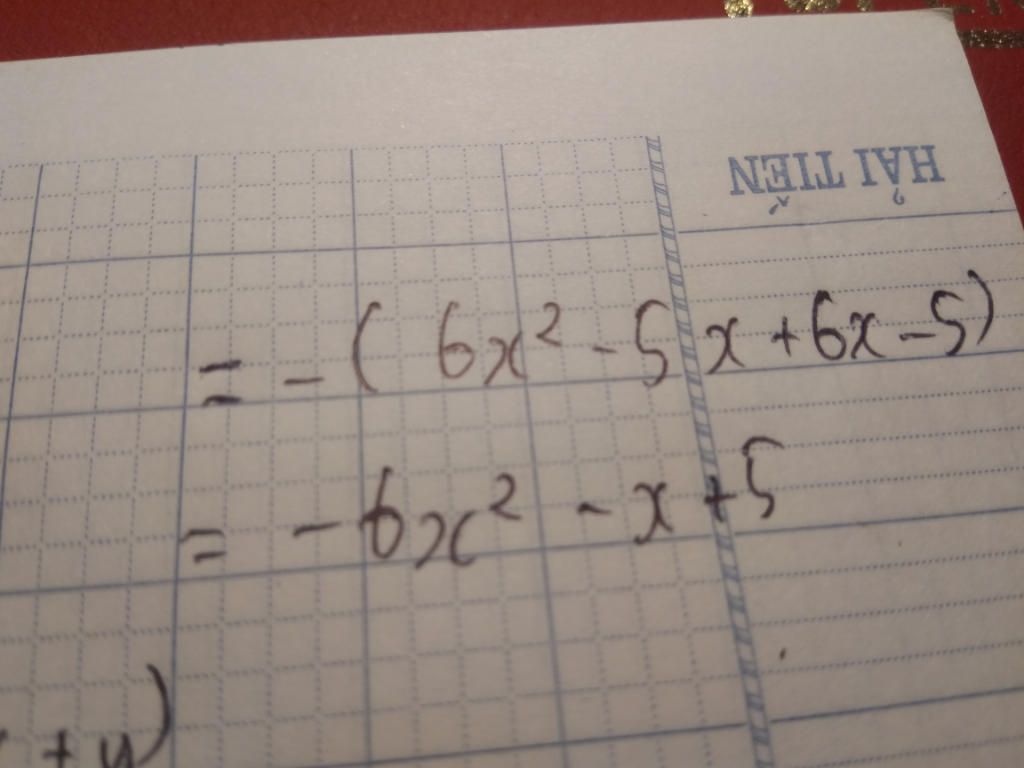 HẢI TIẾN
= - ( 6x² - 5x + 6x - 5)
= - 6x² - x + 5
+ y)